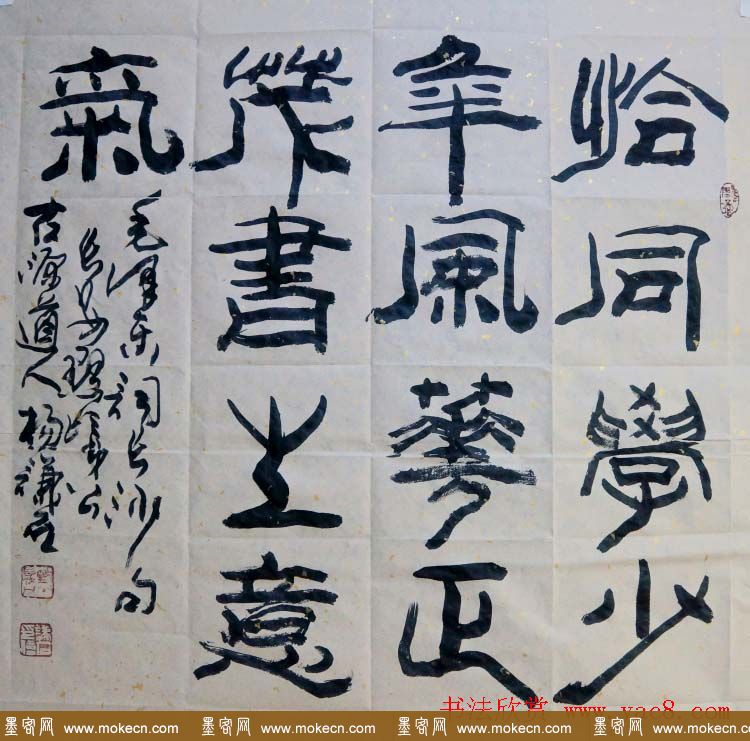 恰同學少
年風華正
茂書生意
氣
毛澤东詞长沙句
道人楊
书法欣赏 www.yac8.com
墨客网 www.mokecn.com 墨客网 www.mokecn.com 墨客网 www.mokecn.com 墨客网 www.mokecn.com